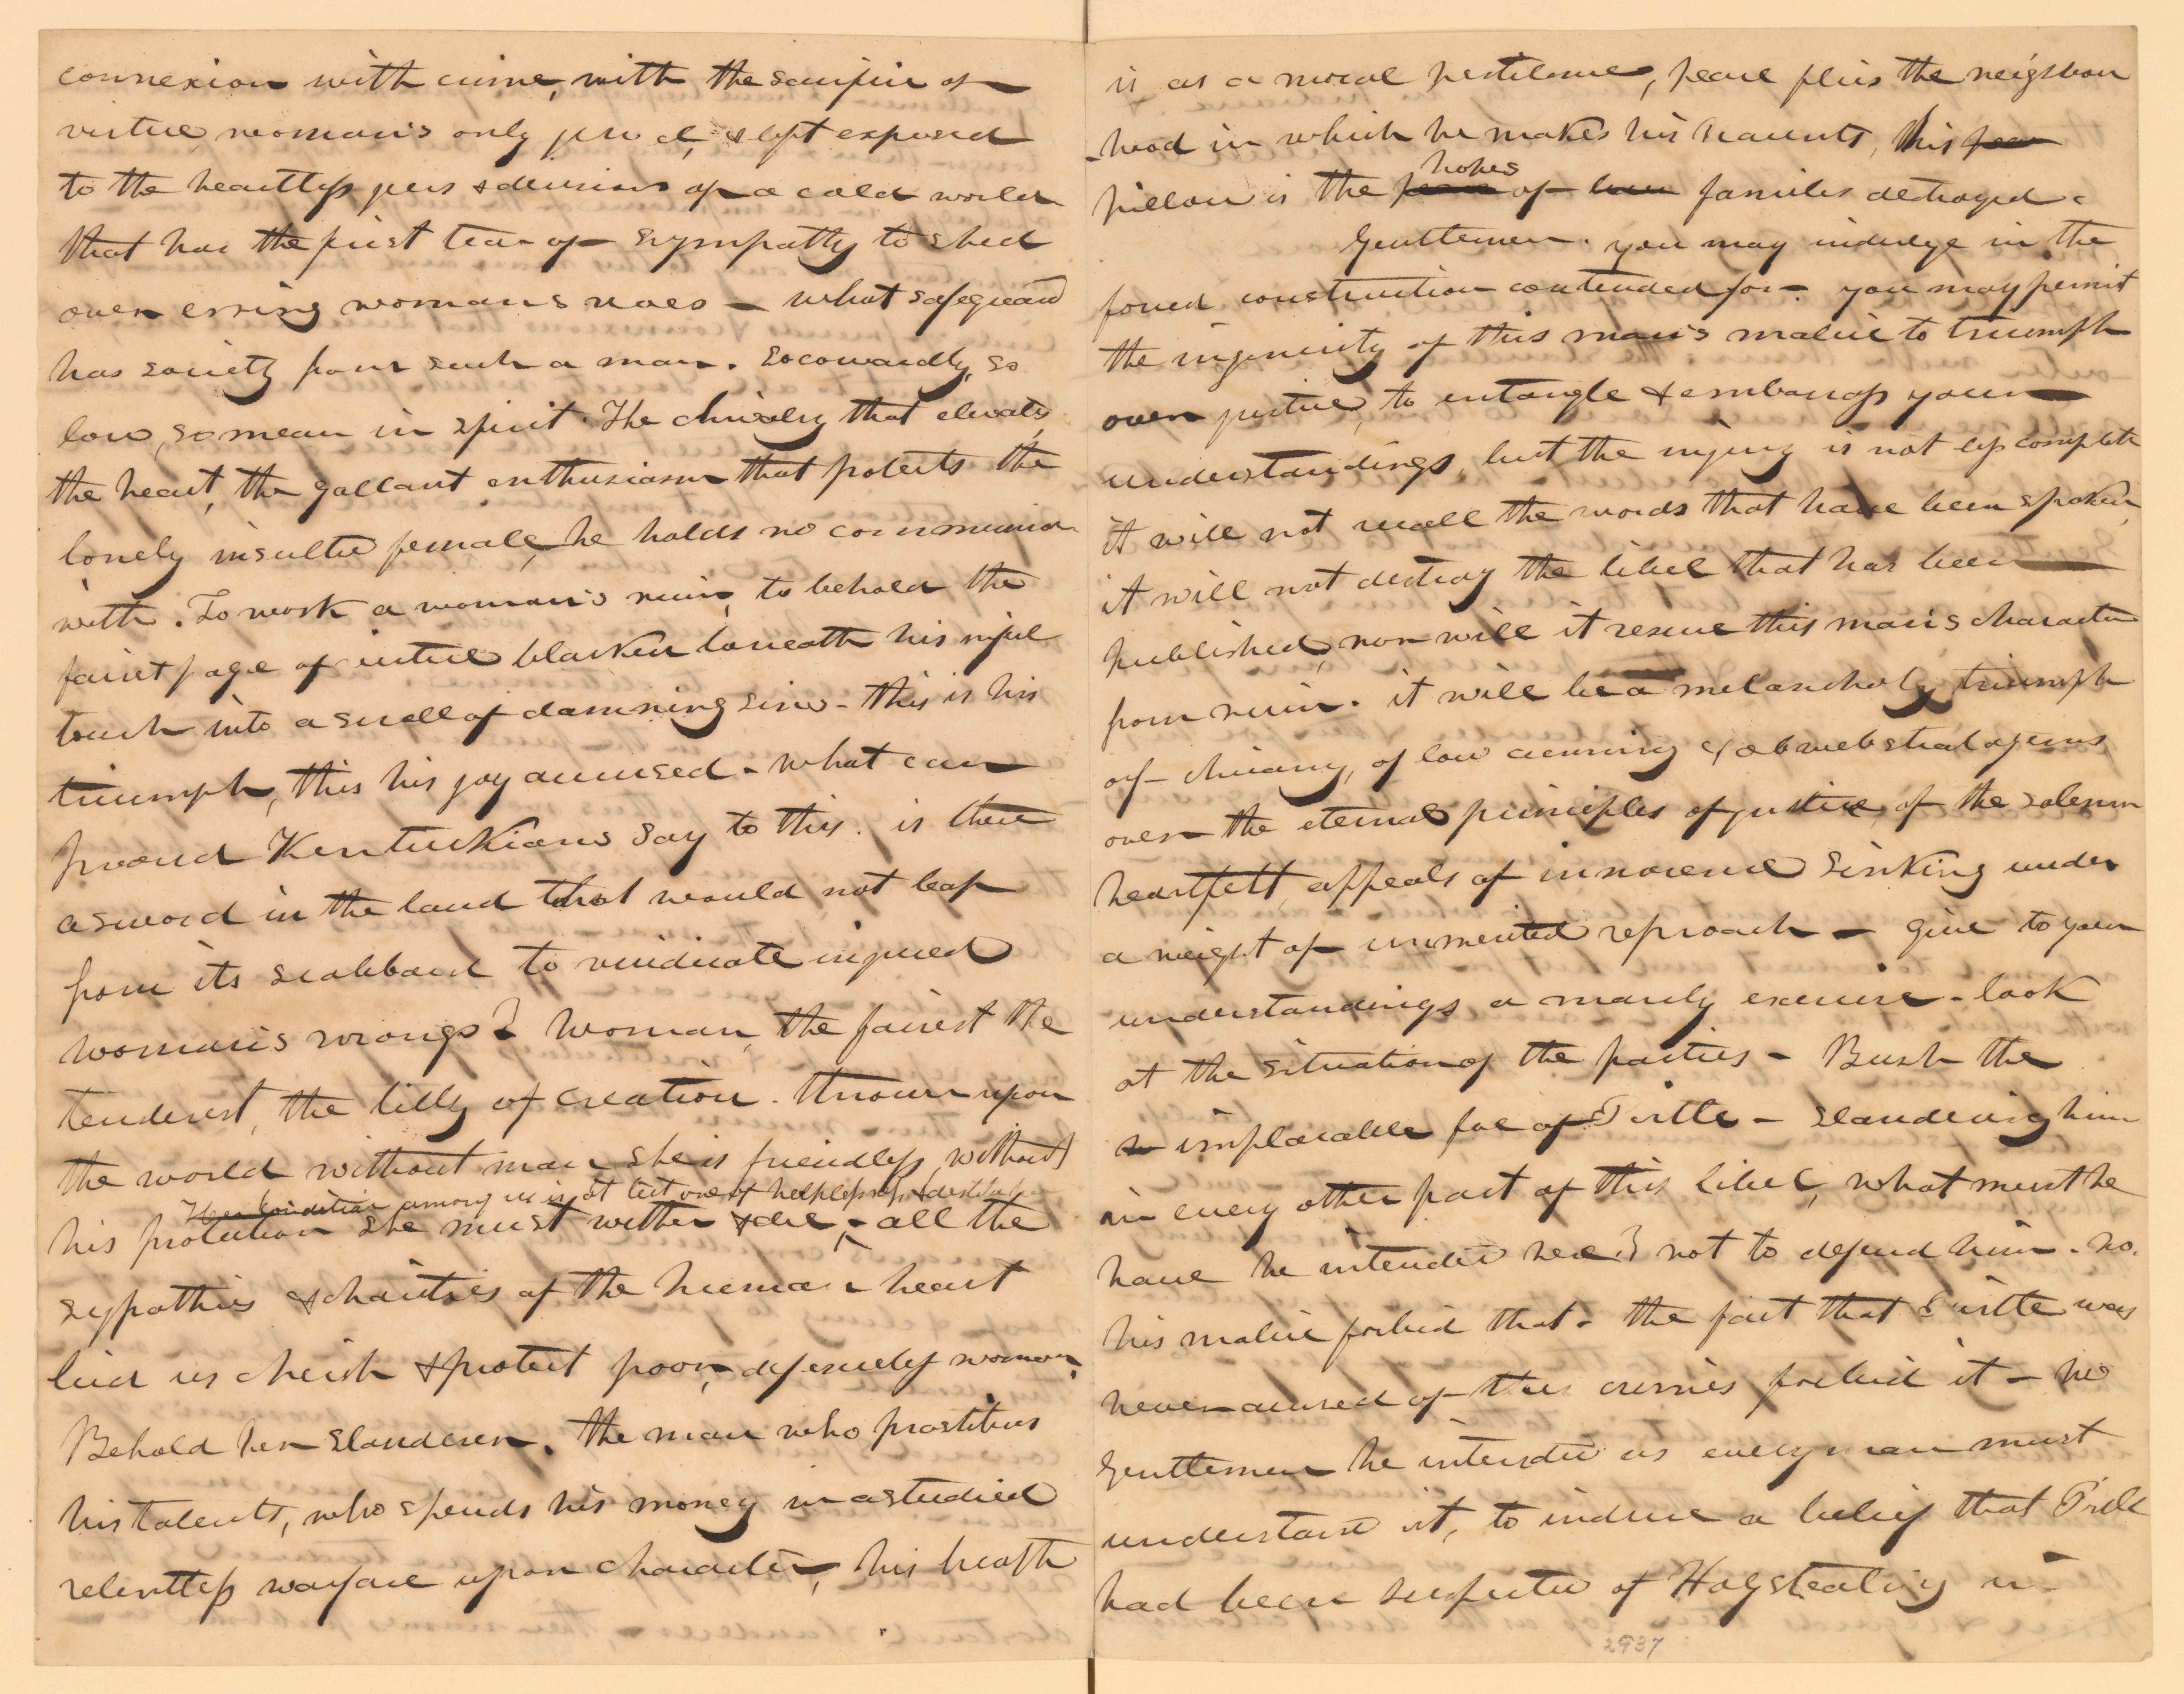 connexion with crime, with the sacrifice of
virtue woman's only jewel, & left exposed
to the heartless jeers & derision of a cold world
that has the first tear of sympathy to shed
over erring womans woes - what safeguard
has society from such a man. So cowardly, so
low, so mean in spirit. The chivalry that elevates
the heart, the gallant enthusiasm that protects the
lonely insulted female, he holds no communion
with. To work a woman's ruin, to behold the
fairest page of virtue blacken beneath his
touch into a scroll of damning sins - this is his
triumph, this his joy accursed - what can
proud Kentuckians say to this. is there
a sword in the land that would not leap
from its scabbard to vindicate injured
woman's wrongs? Woman, the fairest the
tenderest, the lilly of creation. thrown upon
the world without man she is friendless, without
Her condition among us is at best one of helplessness &
his protection she must wither & die, - all the
sypathies & charities of the human heart
bid us cherish & protect poor, defenceless woman.
Behold her slanderer. the man who prostitutes
his talents, who spends his money in a studied
relentless warfare upon character, his breath
is as a moral pestilence, peace flies the neighbour
-hood in which he makes his haunts, his fear
hopes
pillow is the peace of families destroyed.
Gentlemen. you may indulge in the
forced construction contended for - you may permit
the ingenuity of this man's malice to triumph
over justice, to entangle & embarrass your
understandings, but the injury is not less complete
it will not recall the words that have been spoken,
it will not destroy the libel that has been
published, nor will it rescue this man's character
from ruin. it will be a melancholy triumph
of chicany, of low cunning & cobweb stratagems
over the eternal principles of justice, of the solemn
heartfelt appeals of innocence sinking under
a weight of unmerited reproach - give to your
understandings a manly exercise - look
at the situation of the parties - Bush the
implacable foe of Pirtle - slandering him
in every other part of this libel, what must he
have he intended here? not to defend him. no.
his malice forbid that - the fact that Pirtle was
never accused of these crimes forbid it - no
Gentlemen he intended as every man must
understand it, to induce a belief that Pirtle
had been suspected of Hogstealing in
2937